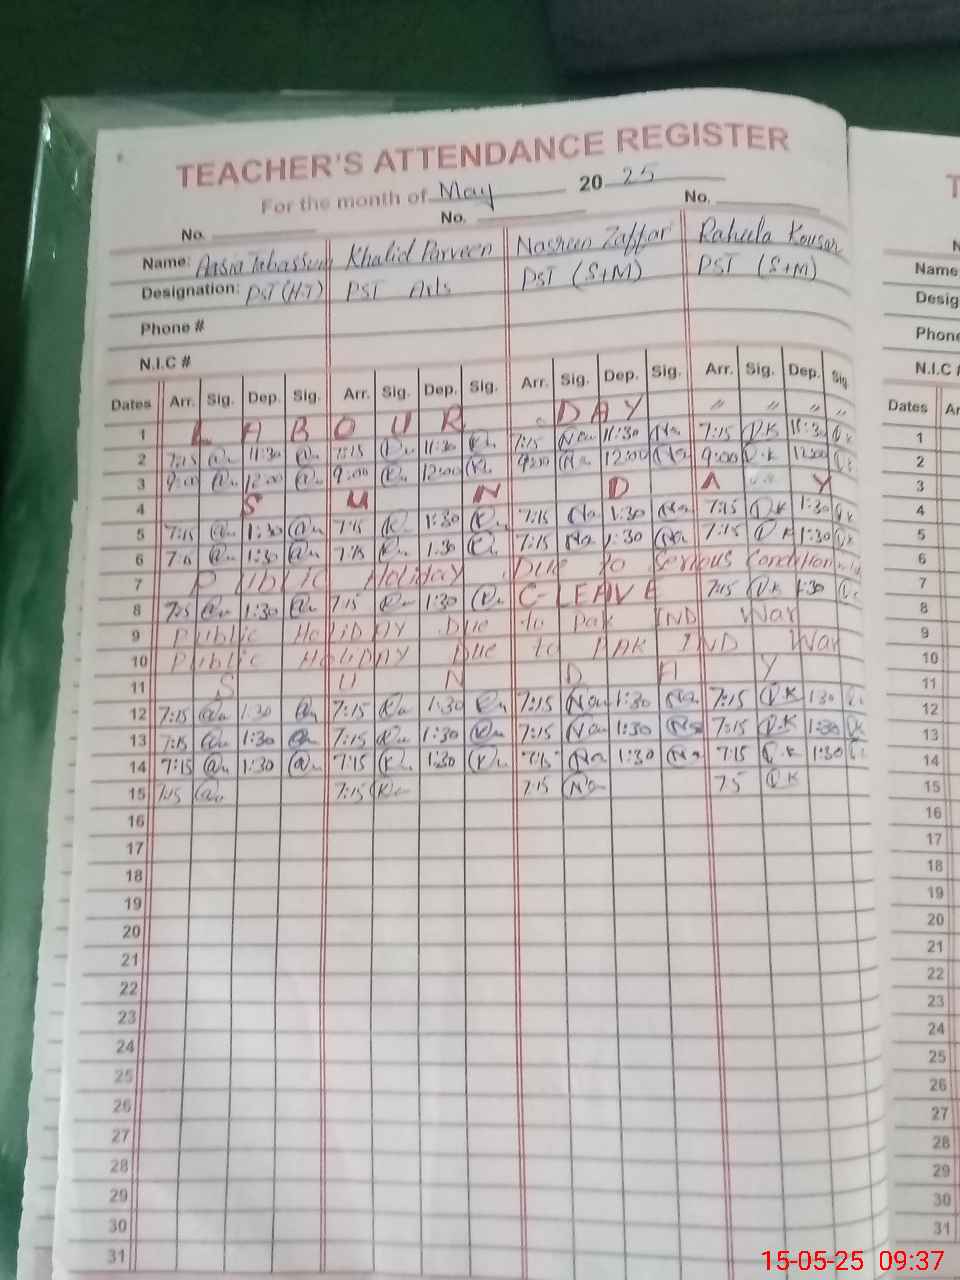 TEACHER'S ATTENDANCE REGISTER
For the month of May 2025
No. No. No.
Name: Aasia Tabassum Khalid Parveen Nosheen Zaffar Raheela Kousar
Designation: PST (H.T) PST Arts PST (S+M) PST (S+M)
Phone #
N.I.C #
Dates Arr. Sig. Dep. Sig. Arr. Sig. Dep. Sig. Arr. Sig. Dep. Sig. Arr. Sig. Dep. Sig.
1 LABOUR DAY " " " "
2 7:15 11:30 7:15 11:30 7:15 Na 11:30 Na 7:15 R.K 11:30
3 9:00 12:00 9:00 12:00 9:00 Na 12:00 Na 9:00 R.K 12:00
4 S U N D A Y
5 7:15 1:30 7:15 1:30 7:15 Na 1:30 Na 7:15 R.K 1:30
6 7:15 1:30 7:15 1:30 7:15 Na 1:30 Na 7:15 R.K 1:30
7 Public Holiday Due to Serious Condition
8 7:15 1:30 7:15 1:30 C-LEAVE 7:15 R.K 1:30
9 Public HoliDAY Due to Pak IND War
10 Public HoliDAY Due to PAK IND War
11 S U N D A Y
12 7:15 1:30 7:15 1:30 7:15 Na 1:30 Na 7:15 R.K 1:30
13 7:15 1:30 7:15 1:30 7:15 Na 1:30 Na 7:15 R.K 1:30
14 7:15 1:30 7:15 1:30 7:15 Na 1:30 Na 7:15 R.K 1:30
15 7:15 7:15 7:15 Na 7:5 R.K
16
17
18
19
20
21
22
23
24
25
26
27
28
29
30
31
T
Name
Desig
Phon
N.I.C #
Dates Ar
1
2
3
4
5
6
7
8
9
10
11
12
13
14
15
16
17
18
19
20
21
22
23
24
25
26
27
28
29
30
31
15-05-25 09:37